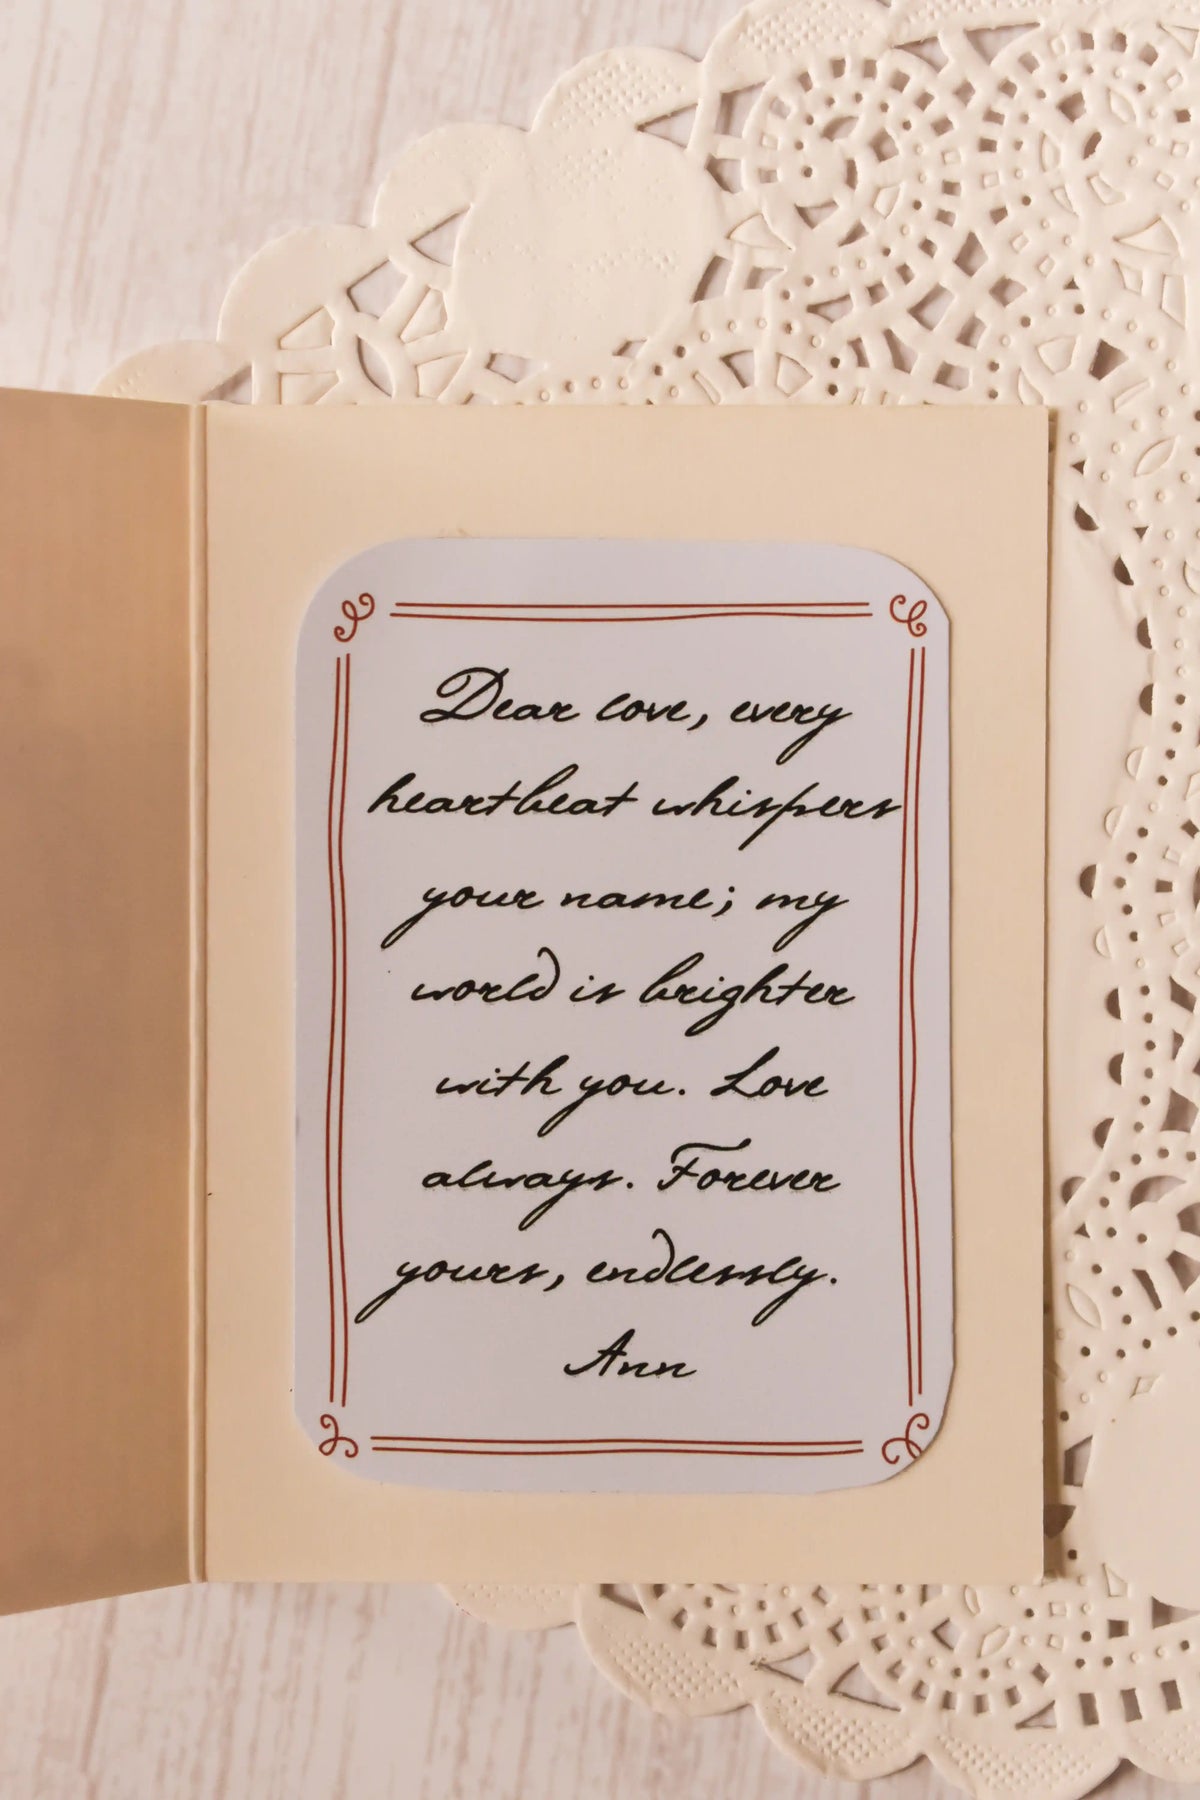 Dear love, every
heartbeat whispers
your name; my
world is brighter
with you. Love
always. Forever
yours, endlessly.
Ann